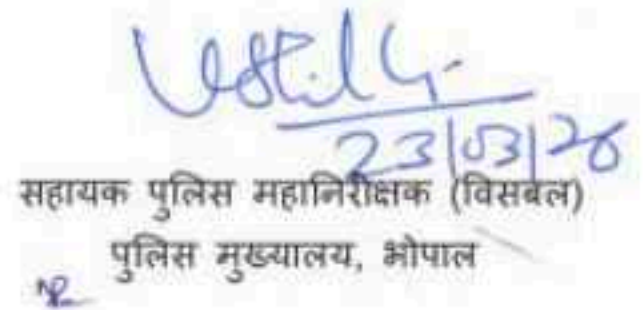 23/03/26
सहायक पुलिस महानिरीक्षक (विसबल)
पुलिस मुख्यालय, भोपाल